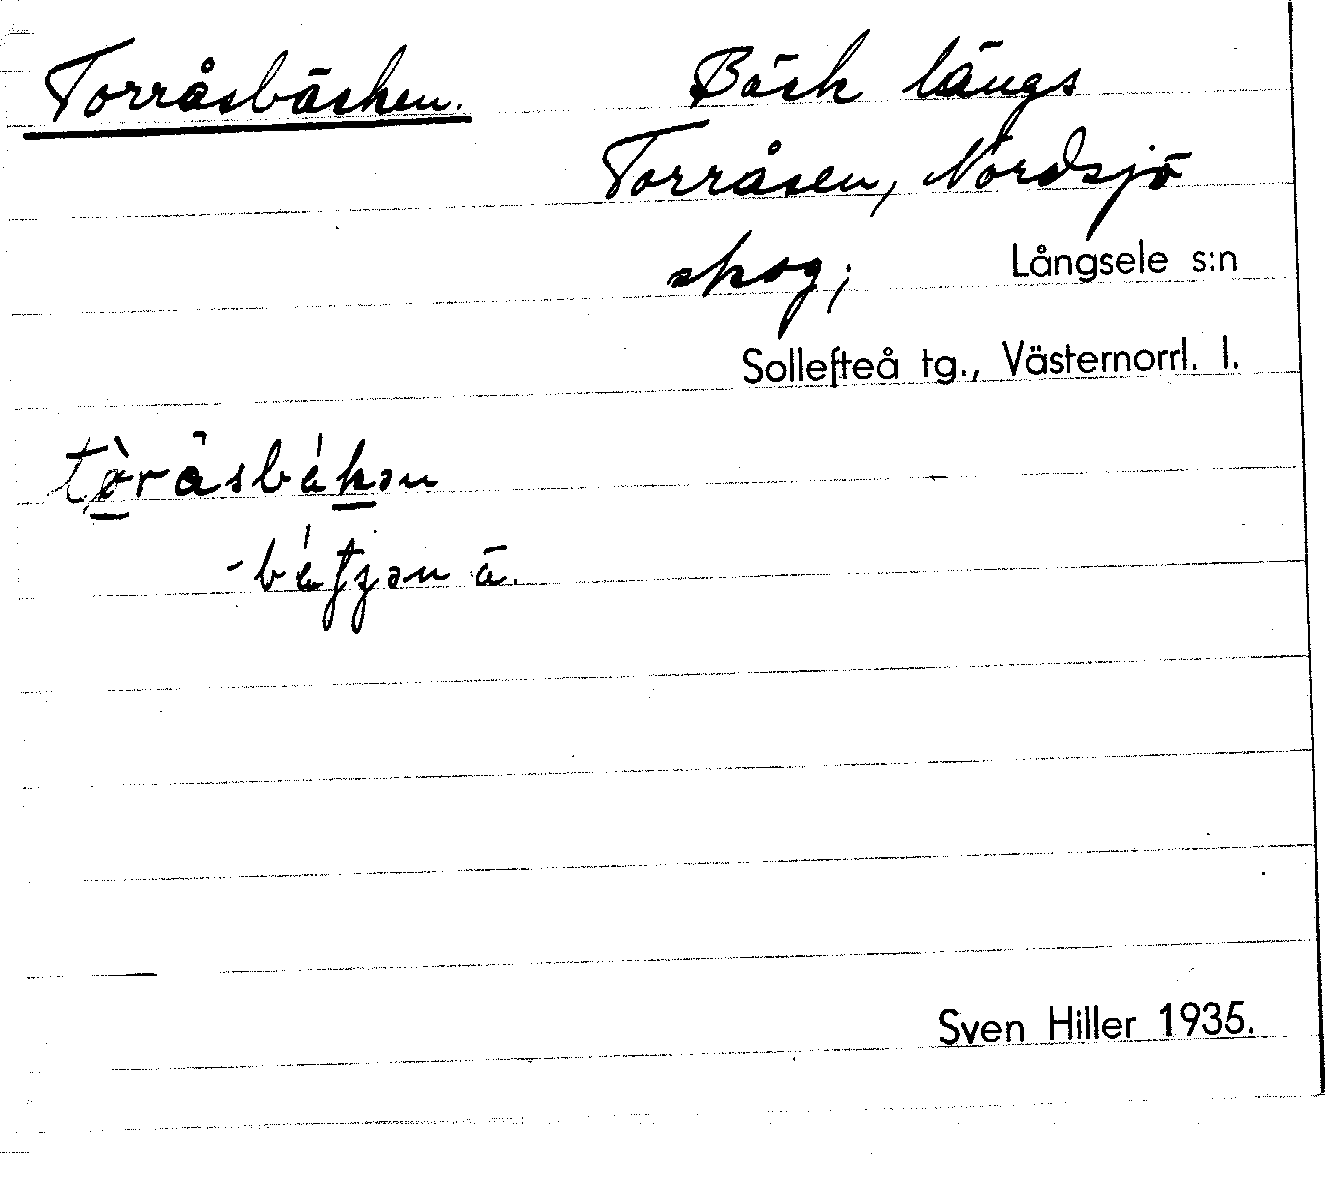 Torråsbäcken. Bäck längs
Torråsen, Nordsjö
skog; Långsele s:n
Sollefteå tg., Västernorrl. l.
Sven Hiller 1935.